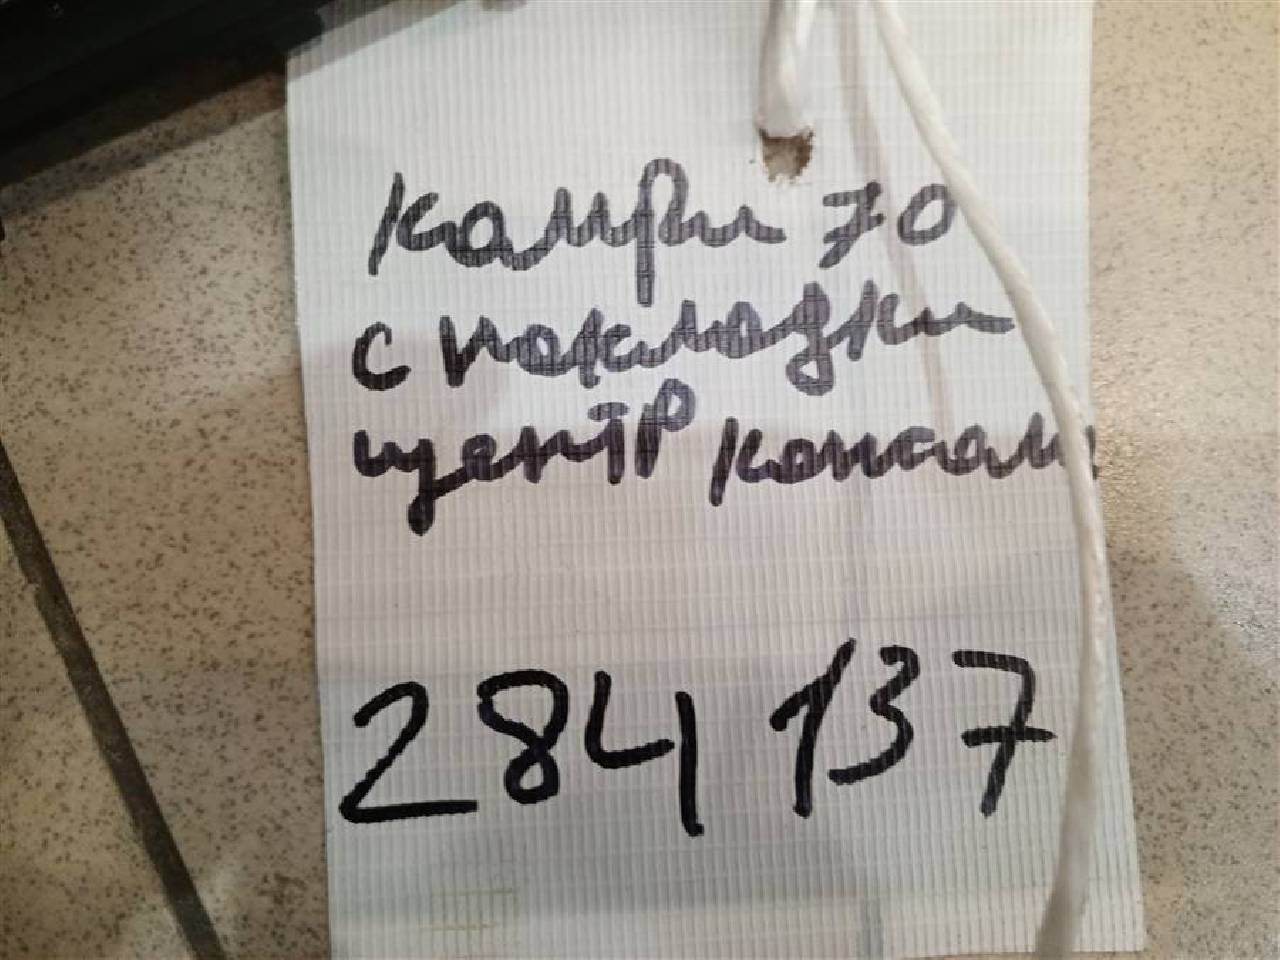 Камри 70
с покладки
центр консоли
284 137